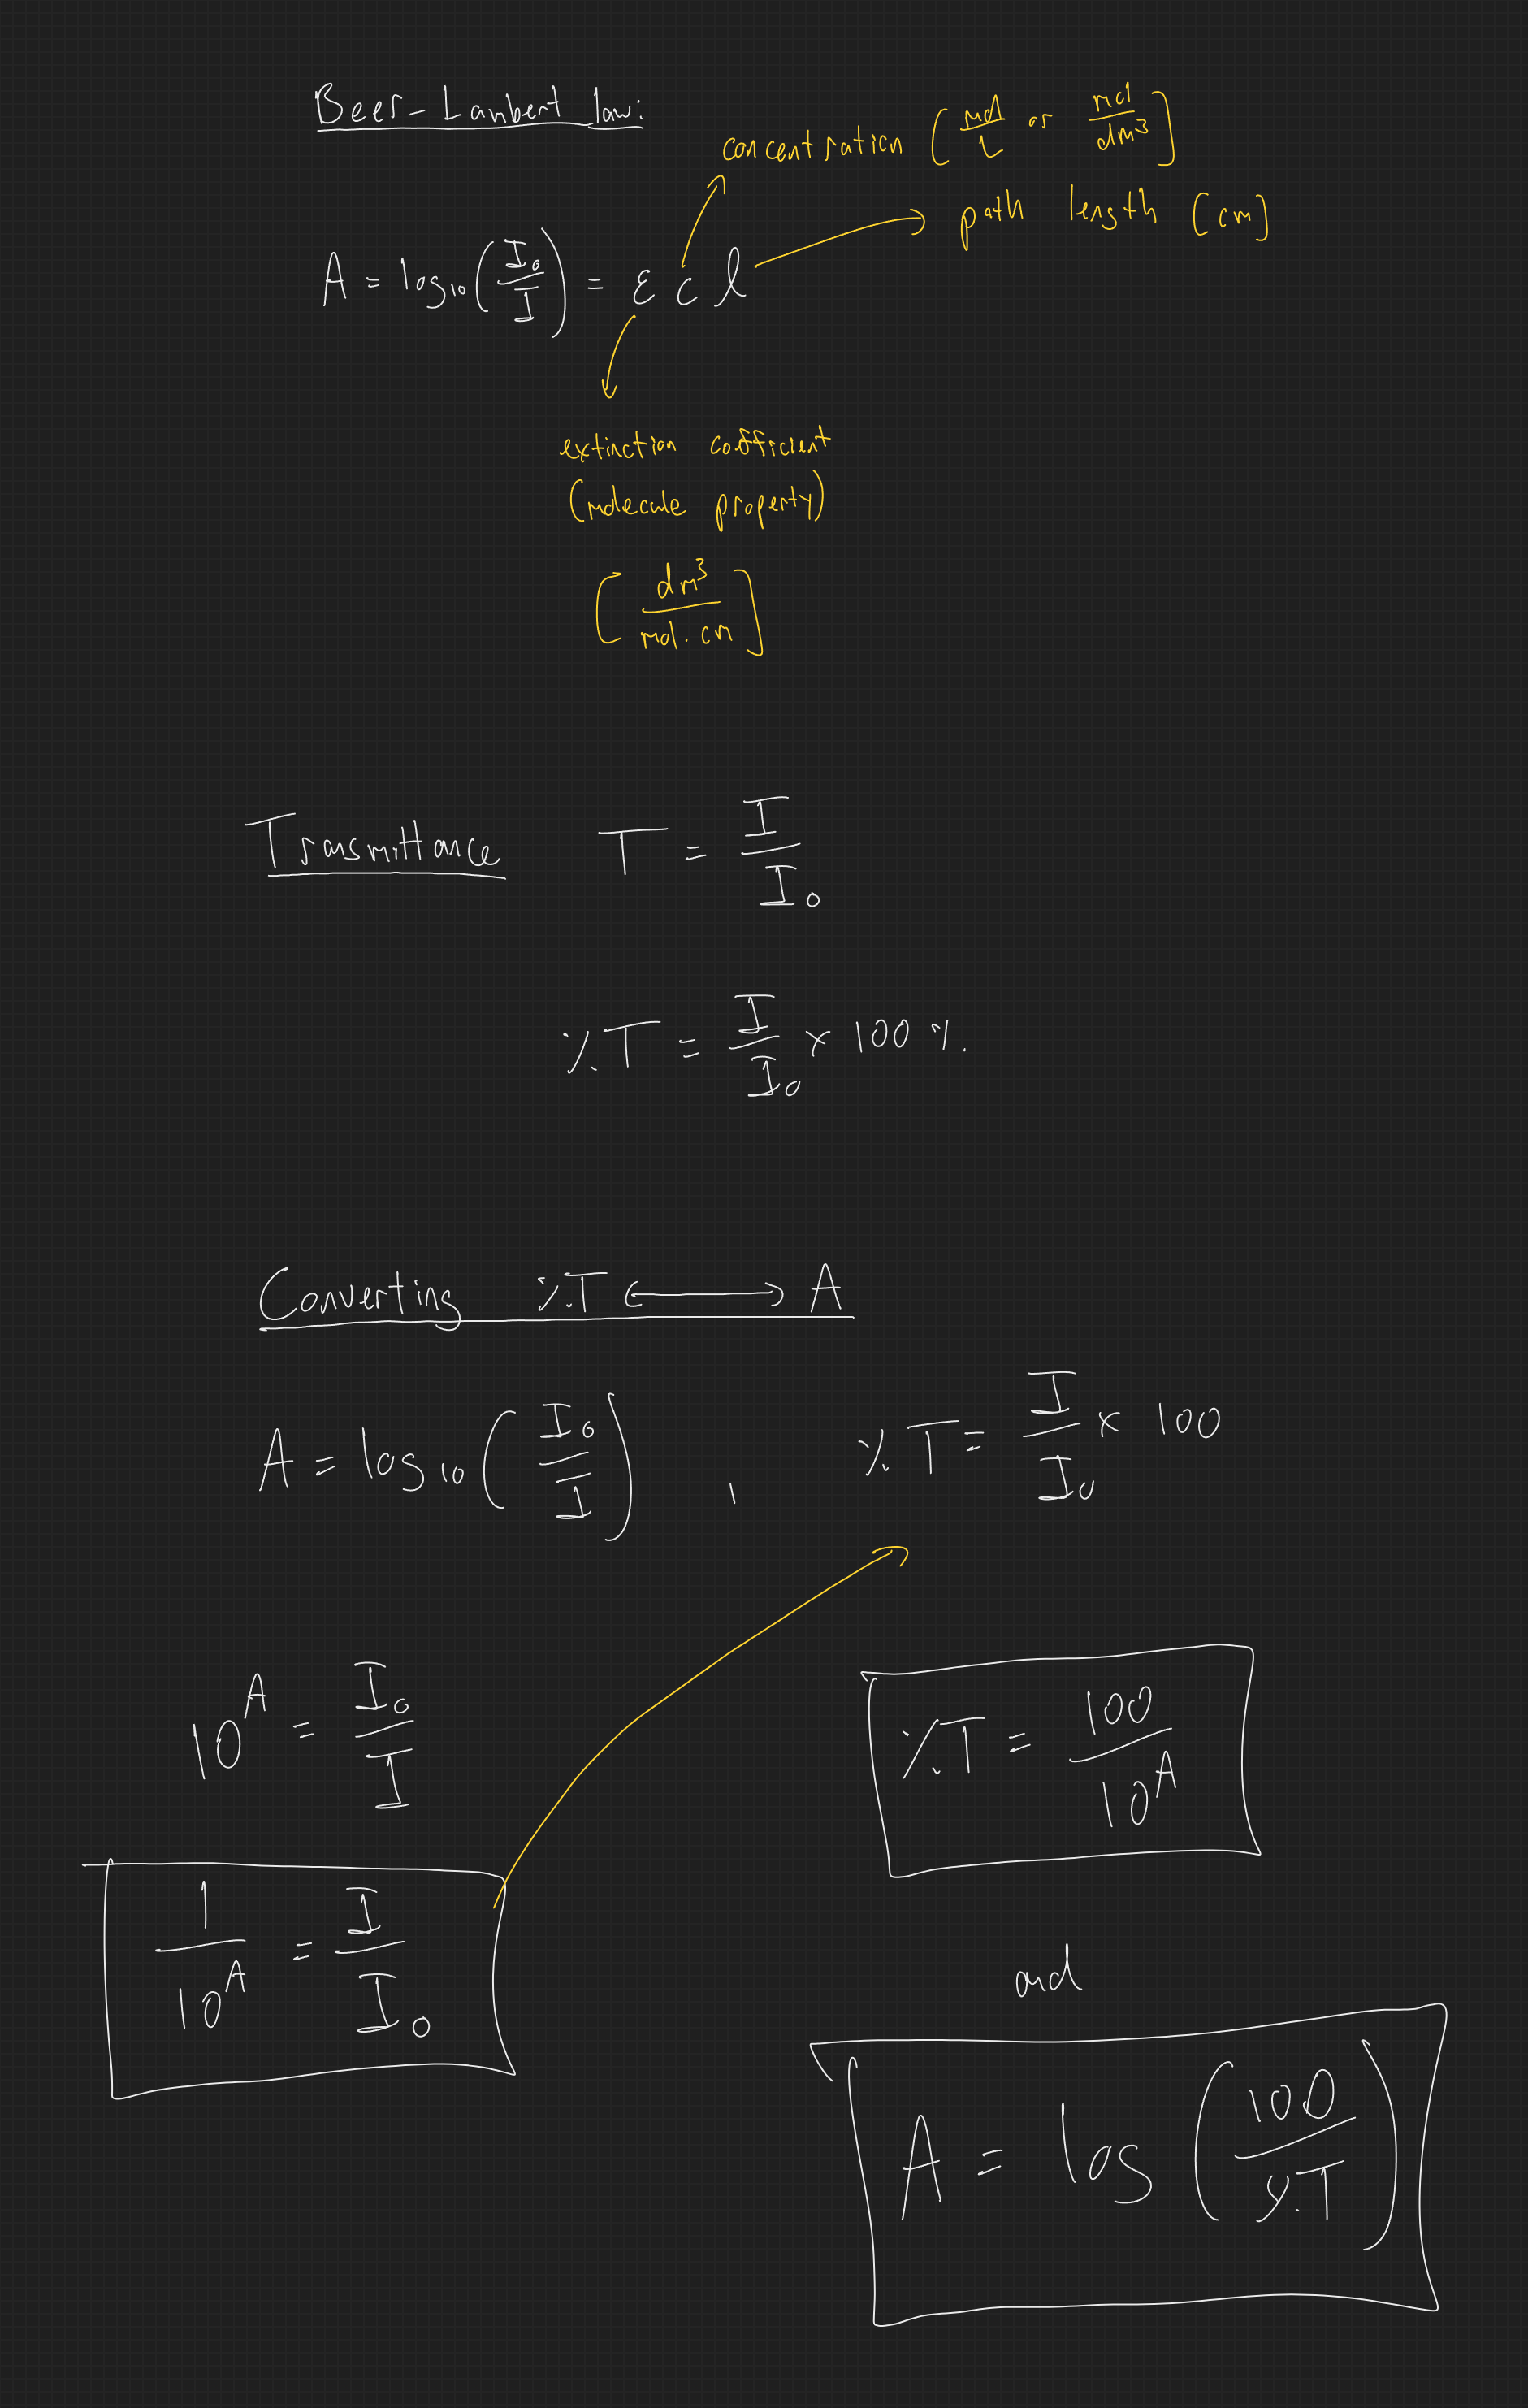 Beer-Lambert law:
concentration [mol/L or mol/dm³]
path length [cm]
A = log₁₀(I₀/I) = ε c l
extinction coefficient
(molecule property)
[dm³/mol·cm]
Transmittance T = I/I₀
%T = I/I₀ × 100 %
Converting %T ⟷ A
A = log₁₀(I₀/I) , %T = I/I₀ × 100
10^A = I₀/I
%T = 100/10^A
1/10^A = I/I₀
and
A = log(100/%T)